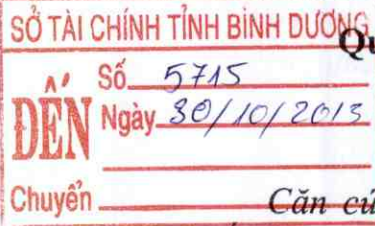 SỞ TÀI CHÍNH TỈNH BÌNH DƯƠNG
Qu
ĐẾN
Số 5715
Ngày 30/10/2013
Chuyển
Căn cứ